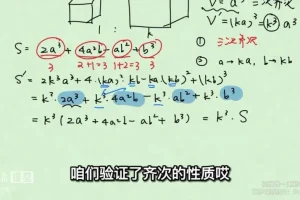 V = a³ 三次齐次
V' = (ka)³ = k³ a³
S = 2a³ + 4a²b - ab² + b³
① 三次齐次
3 2+1=3 1+2=3 3
② a → ka, b → kb
S' = 2k³a³ + 4·(ka)²·kb - ka·(kb)² + (kb)³
= k³·2a³ + k³·4a²b - k³·ab² + k³·b³
= k³(2a³ + 4a²b - ab² + b³) = k³·S
咱们验证了齐次的性质哎